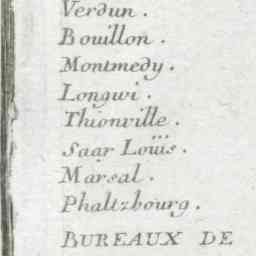 Verdun.
Bouillon.
Montmedy.
Longwi.
Thionville.
Saar Loüis.
Marsal.
Phaltzbourg.
BUREAUX DE